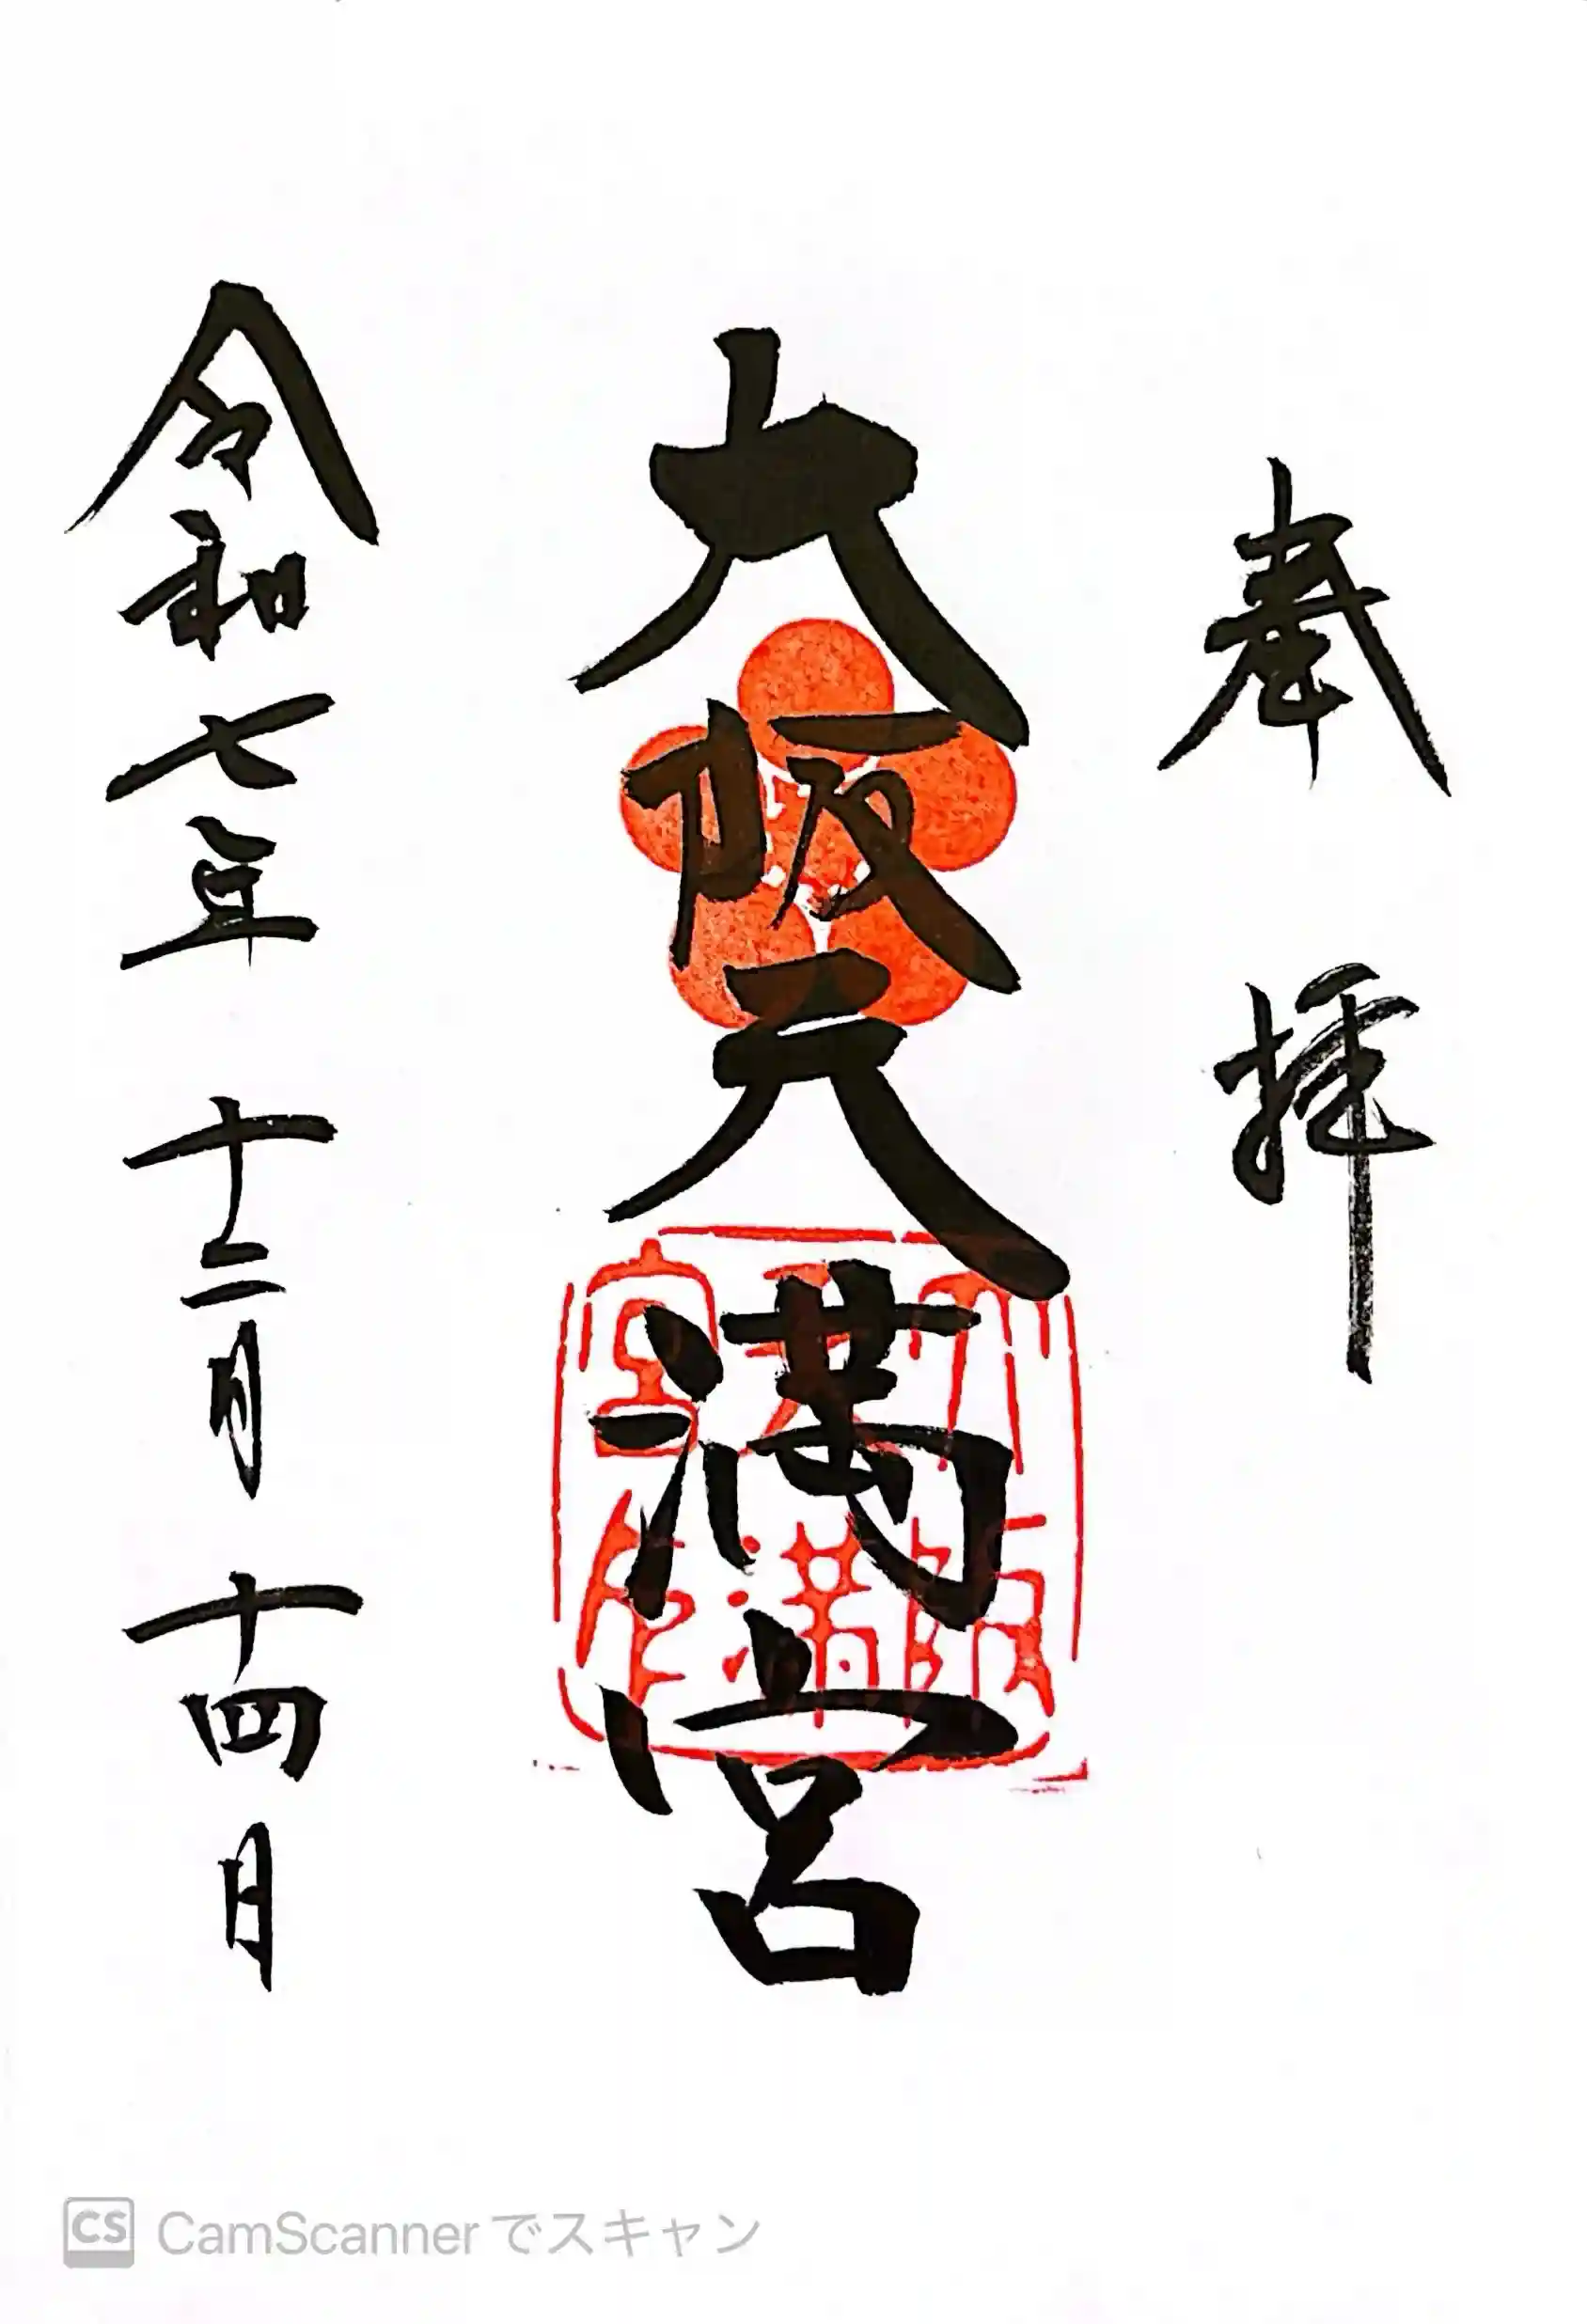 奉拝
大阪天満宮
大阪天満宮印
令和七年 十二月 十四日
CS CamScannerでスキャン